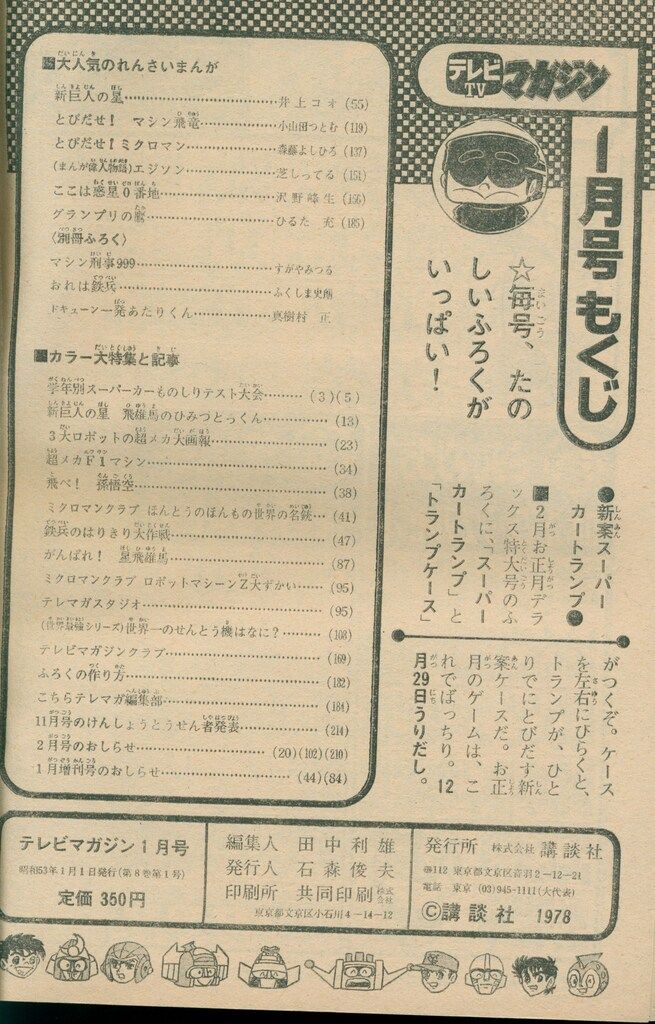 テレビマガジン
TV
1月号もくじ
☆毎号、たの
しいふろくが
いっぱい!
●新案スーパー
カートランプ●
■2月お正月デラ
ックス特大号のふ
ろくに、「スーパー
カートランプ」と
「トランプケース」
がつくぞ。ケース
を左右にひらくと、
トランプが、ひと
りでにとびだす新
案ケースだ。お正
月のゲームは、こ
れでばっちり。12
月29日うりだし。
■大人気のれんさいまんが
新巨人の星……井上コオ(55)
とびだせ! マシン飛竜……小山田つとむ(119)
とびだせ!ミクロマン……森藤よしひろ(137)
(まんが偉人物語)エジソン……芝しってる(151)
ここは惑星0番地……沢野峰生(156)
グランプリの鷹……ひるた 充(185)
〈別冊ふろく〉
マシン刑事999……すがやみつる
おれは鉄兵……ふくしま史朗
ドキューン一発あたりくん……真樹村 正
■カラー大特集と記事
学年別スーパーカーものしりテスト大会……(3)(5)
新巨人の星 飛雄馬のひみつとっくん……(13)
3大ロボットの超メカ大画報……(23)
超メカF1マシン……(34)
飛べ! 孫悟空……(38)
ミクロマンクラブ ほんとうのほんもの世界の名銃…(41)
鉄兵のはりきり大作戦……(47)
がんばれ! 星飛雄馬……(87)
ミクロマンクラブ ロボットマシーンZ大ずかい…(95)
テレマガスタジオ……(95)
(世界最強シリーズ)世界一のせんとう機はなに?……(108)
テレビマガジンクラブ……(169)
ふろくの作り方……(182)
こちらテレマガ編集部……(184)
11月号のけんしょうとうせん者発表……(214)
2月号のおしらせ……(20)(102)(210)
1月増刊号のおしらせ……(44)(84)
テレビマガジン1月号
昭和53年1月1日発行(第8巻第1号)
定価 350円
編集人 田中利雄
発行人 石森俊夫
印刷所 共同印刷株式会社
東京都文京区小石川4-14-12
発行所 株式会社 講談社
〠112 東京都文京区音羽2-12-21
電話 東京 (03)945-1111(大代表)
©講談社 1978